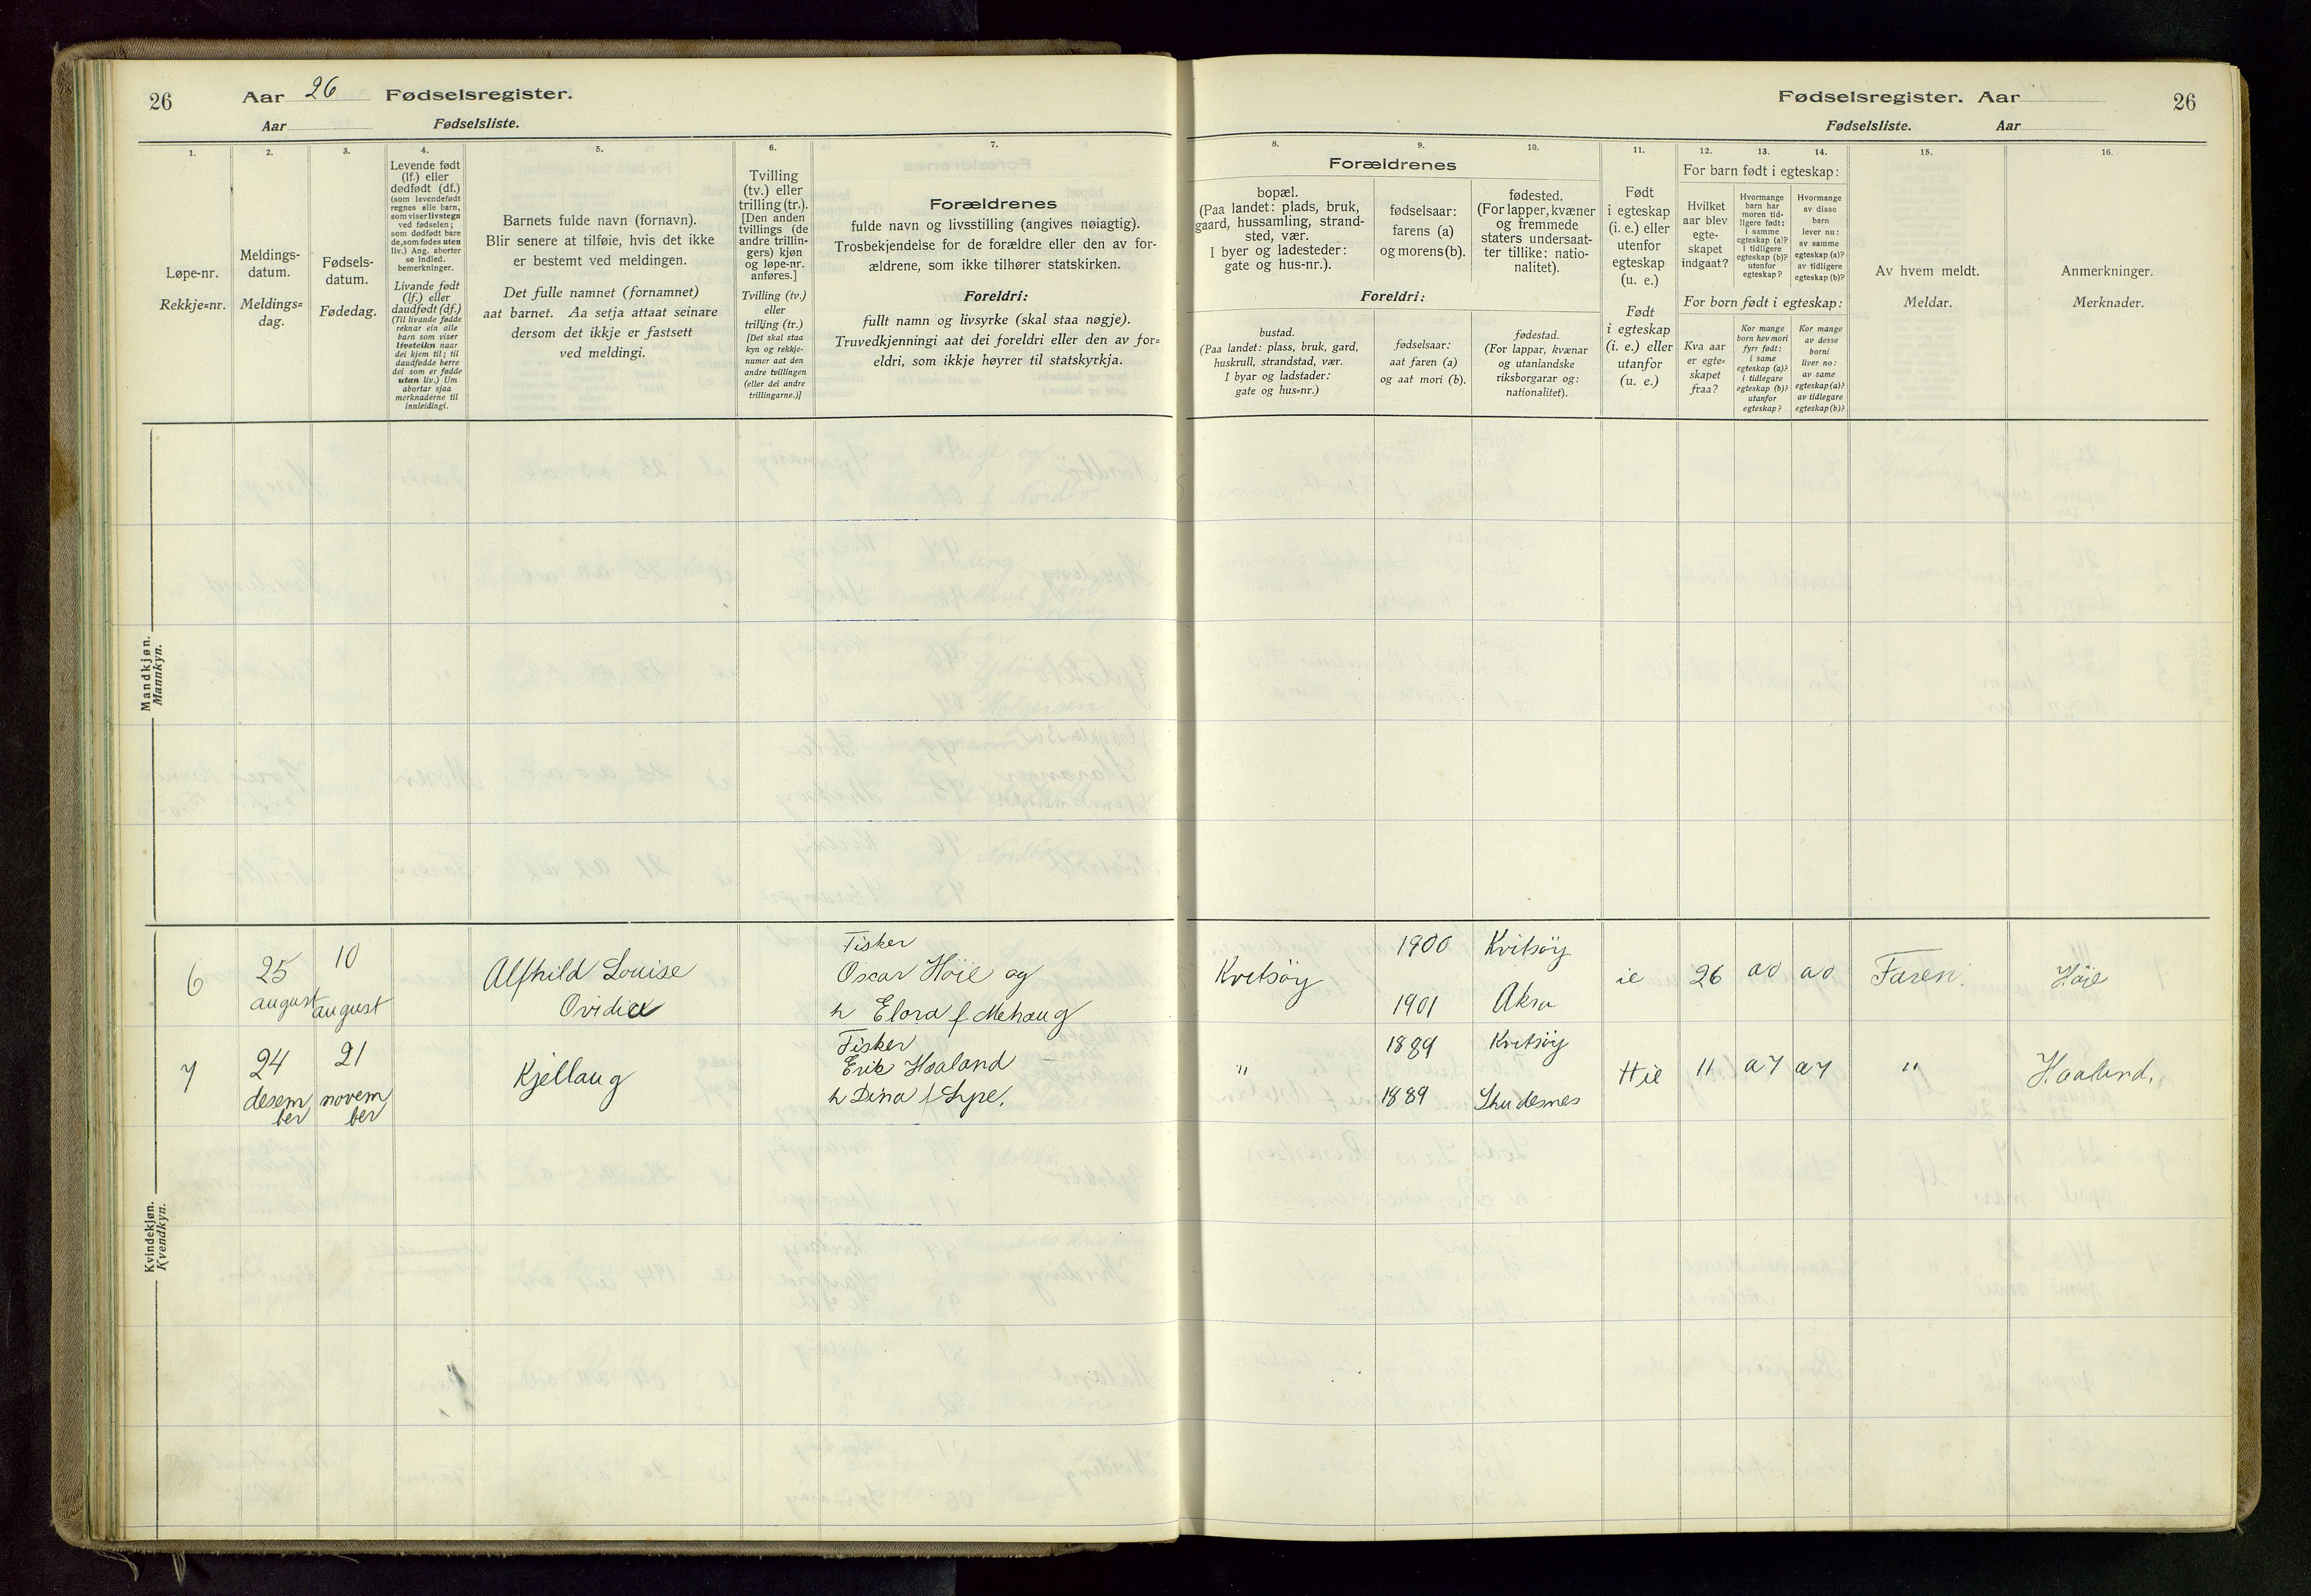 26
Aar 26 Fødselsregister.
Aar Fødselsliste.
Fødselsregister. Aar
26
Fødselsliste. Aar
1.
Løpe-nr.
Rekkje=nr.
2.
Meldings-
datum.
Meldings=
dag.
3.
Fødsels-
datum.
Fødedag.
4.
Levende født
(lf.) eller
dødfødt (df.)
(som levendefødt
regnes alle barn,
som viser livstegn
ved fødselen;
som dødfødt bare
de, som fødes uten
liv.) Ang. aborter
se indled.
bemerkninger.
Livande født
(lf.) eller
daudfødt (df.)
(Til livande fødde
reknar ein alle
barn som viser
livsteikn naar
dei kjem til; til
daudfødde berre
dei som er fødde
utan liv.) Um
abortar sjaa
merknaderne til
innleidingi.
5.
Barnets fulde navn (fornavn).
Blir senere at tilføie, hvis det ikke
er bestemt ved meldingen.
Det fulle namnet (fornamnet)
aat barnet. Aa setja attaat seinare
dersom det ikkje er fastsett
ved meldingi.
6.
Tvilling
(tv.) eller
trilling (tr.).
[Den anden
tvillings (de
andre trillin-
gers) kjøn
og løpe-nr.
anføres.]
Tvilling (tv.)
eller
trilling (tr.)
[Det skal staa
kyn og rekkje-
numer aat den
andre tvillingen
(eller dei andre
trillingarne.)]
7.
Forældrenes
fulde navn og livsstilling (angives nøiagtig).
Trosbekjendelse for de forældre eller den av for-
ældrene, som ikke tilhører statskirken.
Foreldri:
fullt namn og livsyrke (skal staa nøgje).
Truvedkjenningi aat dei foreldri eller den av for=
eldri, som ikkje høyrer til statskyrkja.
8. 9. 10.
Forældrenes
bopæl.
(Paa landet: plads, bruk,
gaard, hussamling, strand-
sted, vær.
I byer og ladesteder:
gate og hus-nr.).
fødselsaar:
farens (a)
og morens (b).
fødested.
(For lapper, kvæner
og fremmede
staters undersaat-
ter tillike: natio-
nalitet).
Foreldri:
bustad.
(Paa landet: plass, bruk, gard,
huskrull, strandstad, vær.
I byar og ladstader:
gate og hus=nr.)
fødselsaar:
aat faren (a)
og aat mori (b).
fødestad.
(For lappar, kvænar
og utanlandske
riksborgarar og:
nationalitet).
11.
Født
i egteskap
(i. e.) eller
utenfor
egteskap
(u. e.)
Født
i egteskap
(i. e.) eller
utanfor
(u. e.)
12. 13. 14.
For barn født i egteskap:
Hvilket
aar blev
egte-
skapet
indgaat?
Hvormange
barn har
moren tid-
ligere født:
i samme
egteskap (a)?
i tidligere
egteskap (b)?
utenfor
egteskap?
Hvormange
av disse
barn
lever nu:
av samme
egteskap (a)?
av tidligere
egteskap (b)?
For born født i egteskap:
Kva aar
er egte=
skapet
fraa?
Kor mange
born hev mori
fyrr født:
i same
egteskap (a)?
i tidlegare
egteskap (b)?
utanfor
egteskap?
Kor mange
av desse
borni
liver no:
av same
egteskap (a)?
av tidlegare
egteskap (b)?
15.
Av hvem meldt.
Meldar.
16.
Anmerkninger.
Merknader.
Mandkjøn.
Mannkyn.
Kvindekjøn.
Kvendkyn.
6
25
august
10
august
Alfhild Louise
Ovidia
Fisker
Oscar Höie og
h Elora f Mehaug
Kvitsöy
1900
1901
Kvitsöy
Akra
ie
26
a0
a0
Faren.
Höie
7
24
desem
ber
21
novem
ber
Kjellaug
Fisker
Erik Haaland
h Dina f Lype.
"
1889
1889
Kvitsöy
Skudesnes
ie
11
a7
a7
"
Haaland.